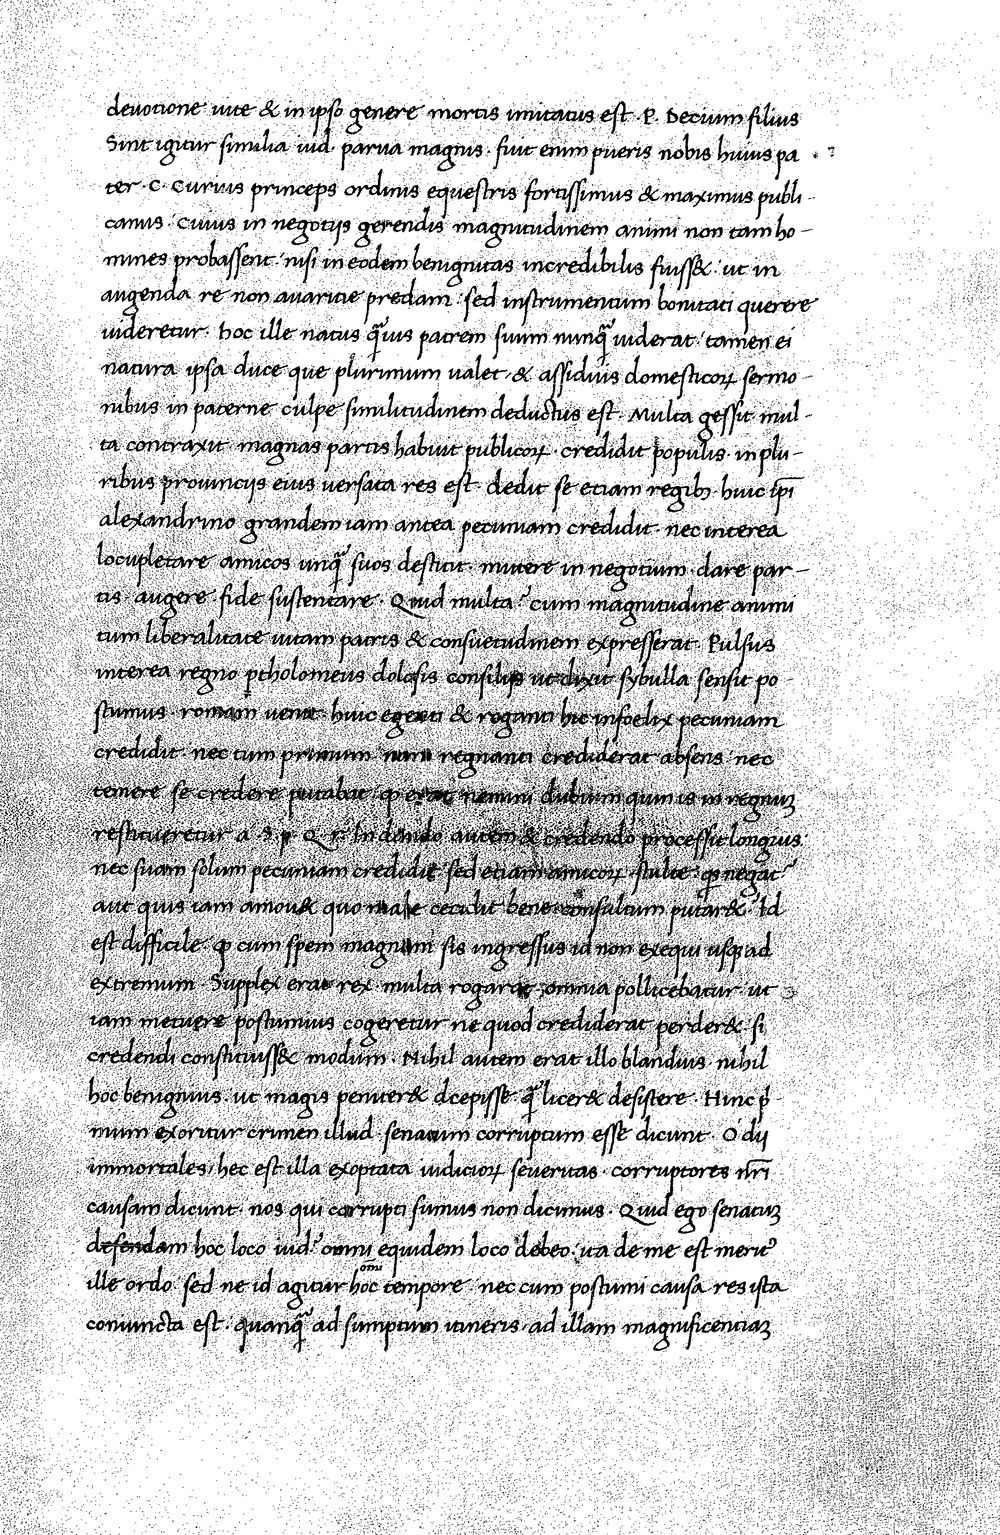 deuotione uite & in ipso genere mortis imitatus est · P · Decium filius
Sint igitur similia iud · parua magnis · fuit enim pueris nobis huius pa
ter · C · Curius princeps ordinis equestris fortissimus & maximus publi-
canus · Cuius in negotijs gerendis magnitudinem animi non tam ho-
mines probassent · nisi in eodem benignitas incredibilis fuiss& · ut in
augenda re non auaritie predam · sed instrumentum bonitati querere
uideretur · hoc ille natus q̃uis patrem suum nunq̃ uiderat · tamen ei
natura ipsa duce que plurimum ualet · & assiduis domesticoꝝ sermo-
nibus in paterne culpe similitudinem deductus est · Multa gessit mul-
ta contraxit · magnas partis habuit publicoꝝ · credidit populis · in plu-
ribus prouincijs eius uersata res est · dedit se etiam regibꝫ · huic ip̃i
alexandrino grandem iam antea pecuniam credidit · nec interea
locupletare amicos unq̃ suos destitit · mittere in negotium · dare par-
tis · augere fide sustentare · Quid multa? cum magnitudine animi
tum liberalitate uitam patris & consuetudinem expresserat · Pulsus
interea regno ptholomeus dolosis consilijs ut dixit sybulla sensit po
stumus · romam uenit · huic egenti & roganti hic infoelix pecuniam
credidit · nec tum primum nam regnanti crediderat absens · nec
temere se credere putabat · ꝙ erat nemini dubium quin is in regnuꝫ
restitueretur a · S · p · Q · r · In dando autem & credendo processit longius
nec suam solum pecuniam credidit sed etiam amicoꝝ · stulte · q̃s negat
aut quis iam amou& quo male cecidit bene consultum putar& · Id
est difficile · ꝙ cum spem magnam sis ingressus id non exequi usqꝫ ad
extremum · Supplex erat rex · multa rogarat · omnia pollicebatur · ut
iam metuere postumius cogeretur ne quod crediderat perder& · si
credendi constituiss& modum · Nihil autem erat illo blandius · nihil
hoc benignius · ut magis peniter& dcepisse q̃ licer& desistere · Hinc p̃
mum exoritur crimen illud · senatum corruptum esse dicunt · O dij
immortales, hec est illa exoptata iudicioꝝ seueritas · corruptores nr̃i
causam dicunt · nos qui corrupti sumus non dicimus · Quid ego senatuꝫ
defendam hoc loco iud? omni equidem loco debeo · ita de me est merit᾽
omi
ille ordo · sed ne id agitur hoc tempore · nec cum postumi causa res ista
coniuncta est · quanq̃ ad sumptum itineris, ad illam magnificentiaꝫ